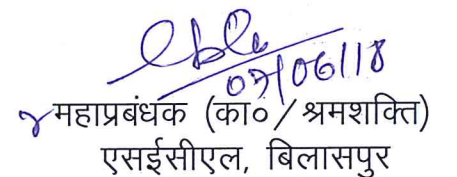 07/06/18
महाप्रबंधक (का०/श्रमशक्ति)
एसईसीएल, बिलासपुर